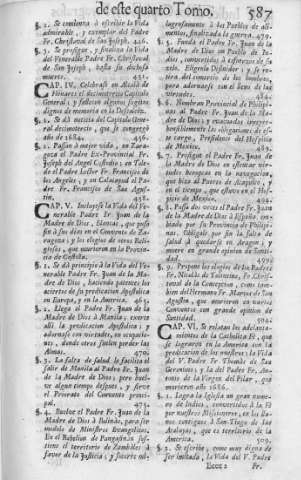 de este quarto Tomo. 587
§. 2. Se comiença à escribir la Vida
admirable, y exemplar del Padre
Fr. Christoval de San Joseph. 426.
§. 3. Se prosigue, y finaliza la Vida
del Venerable Padre Fr. Christoval
de San Joseph, hasta su dichosa
muerte. 431.
CAP. IV. Celebrase en Alcalà de
Henares el dezimotercio Capitulo
General, y fallecen algunos sugetos
dignos de memoria en la Descalcèz.
§. 1. Se dà noticia del Capitulo Gene-
ral dezimotercio, que se congregò
año de 1684. 436.
§. 2. Passan à mejor vida, en Zara-
goza el Padre Ex-Provincial Fr.
Joseph del Angel Custodio; en Tole-
do el Padre Lector Fr. Francisco de
los Angeles; y en Calatayud el Pa-
dre Fr. Francisco de San Agus-
tin. 438.
CAP. V. Incluyese la Vida del Ve-
nerable Padre Fr. Juan de la
Madre de Dios, Blancas, que passò
en sus dias en el Convento de Za-
ragoza; y los elogios de otros Reli-
giosos, que murieron en la Provin-
cia de Castilla.
§. 1. Se dà principio à la Vida del Ve-
nerable Padre Fr. Juan de la Ma-
dre de Dios, haciendo patentes los
aciertos de su predicacion Apostolica
en Europa, y en la America. 463.
§. 2. Llega el Padre Fr. Juan de la
Madre de Dios à Manila: exerce
alli la predicacion Apostolica; y
adornado con virtudes, en ocupacio-
nes, donde otros suelen perder las
Almas. 470.
§. 3. La falta de salud le facilita el
salir de Manila al Padre Fr. Juan
de la Madre de Dios; pero buel-
ve algun tiempo despues, y sirve
el Priorato del Convento princi-
pal.
§. 4. Buelve el Padre Fr. Juan de la
Madre de Dios à Indias, para ser
modelo de Ministros Evangelicos.
En el Rebelion de Pangasinan sus-
tiene el territorio de Zambales à
favor de la Justicia; y socorre mi-
lagrosamente à los Pueblos de Al-
mentos, finalizada la guerra. 479.
§. 5. Funda el Padre Fr. Juan de la
Madre de Dios un Pueblo de In-
dios, convertidos à esfuerzos de su
zelo.
§. 6. Nombran Provincial de Philipi-
nas al Padre Fr. Juan de la Ma-
dre de Dios; y exonerado irrepre-
hensiblemente las obligaciones de es-
te cargo, Presidente del Hospicio
de Mexico.
§. 7. Prosigue el Padre Fr. Juan de
la Madre de Dios en obstentar vir-
tudes heroycas en la navegacion,
que hizo al Puerto de Acapulco, y
en el tiempo, que estuvo en el Hospi-
cio de Mexico. 494.
§. 8. Passa el Padre Fr. Juan de
la Madre de Dios à España, em-
biado por su Provincia de Philipi-
nas. Obligale por fin la falta de
salud à quedarse en Aragon; y
muere en grande opinion de Santi-
dad. 499.
§. 9. Propone los elogios de los Padres
Fr. Nicolàs de Tolentino, Fr. Christ-
oval de la Concepcion, como tam-
bien del Hermano Fr. Marcos de San
Agustin, que murieron en varios
Conventos con grande opinion de
Santidad.
CAP. VI. Se relatan los adelanta-
mientos de la Catholica Fè, que
se lograron en la America con la
predicacion de los nuestros: la Vida
del V. Padre Fr. Thomàs de San
Geronimo; y la del Padre Fr. An-
tonio de la Virgen del Pilar, que
murieron año 1686.
§. 1. Logra la Iglesia un gran nume-
ro de Indios, convertidos à la Fè
por nuestros Missioneros, en los Lla-
nos contiguos à San-Tiago de las
Atalayas, que es territorio de la
America. 509.
§. 2. Se escribe, como muy digna de
ser imitada, la Vida del V. Padre
Eeee 2 Fr.